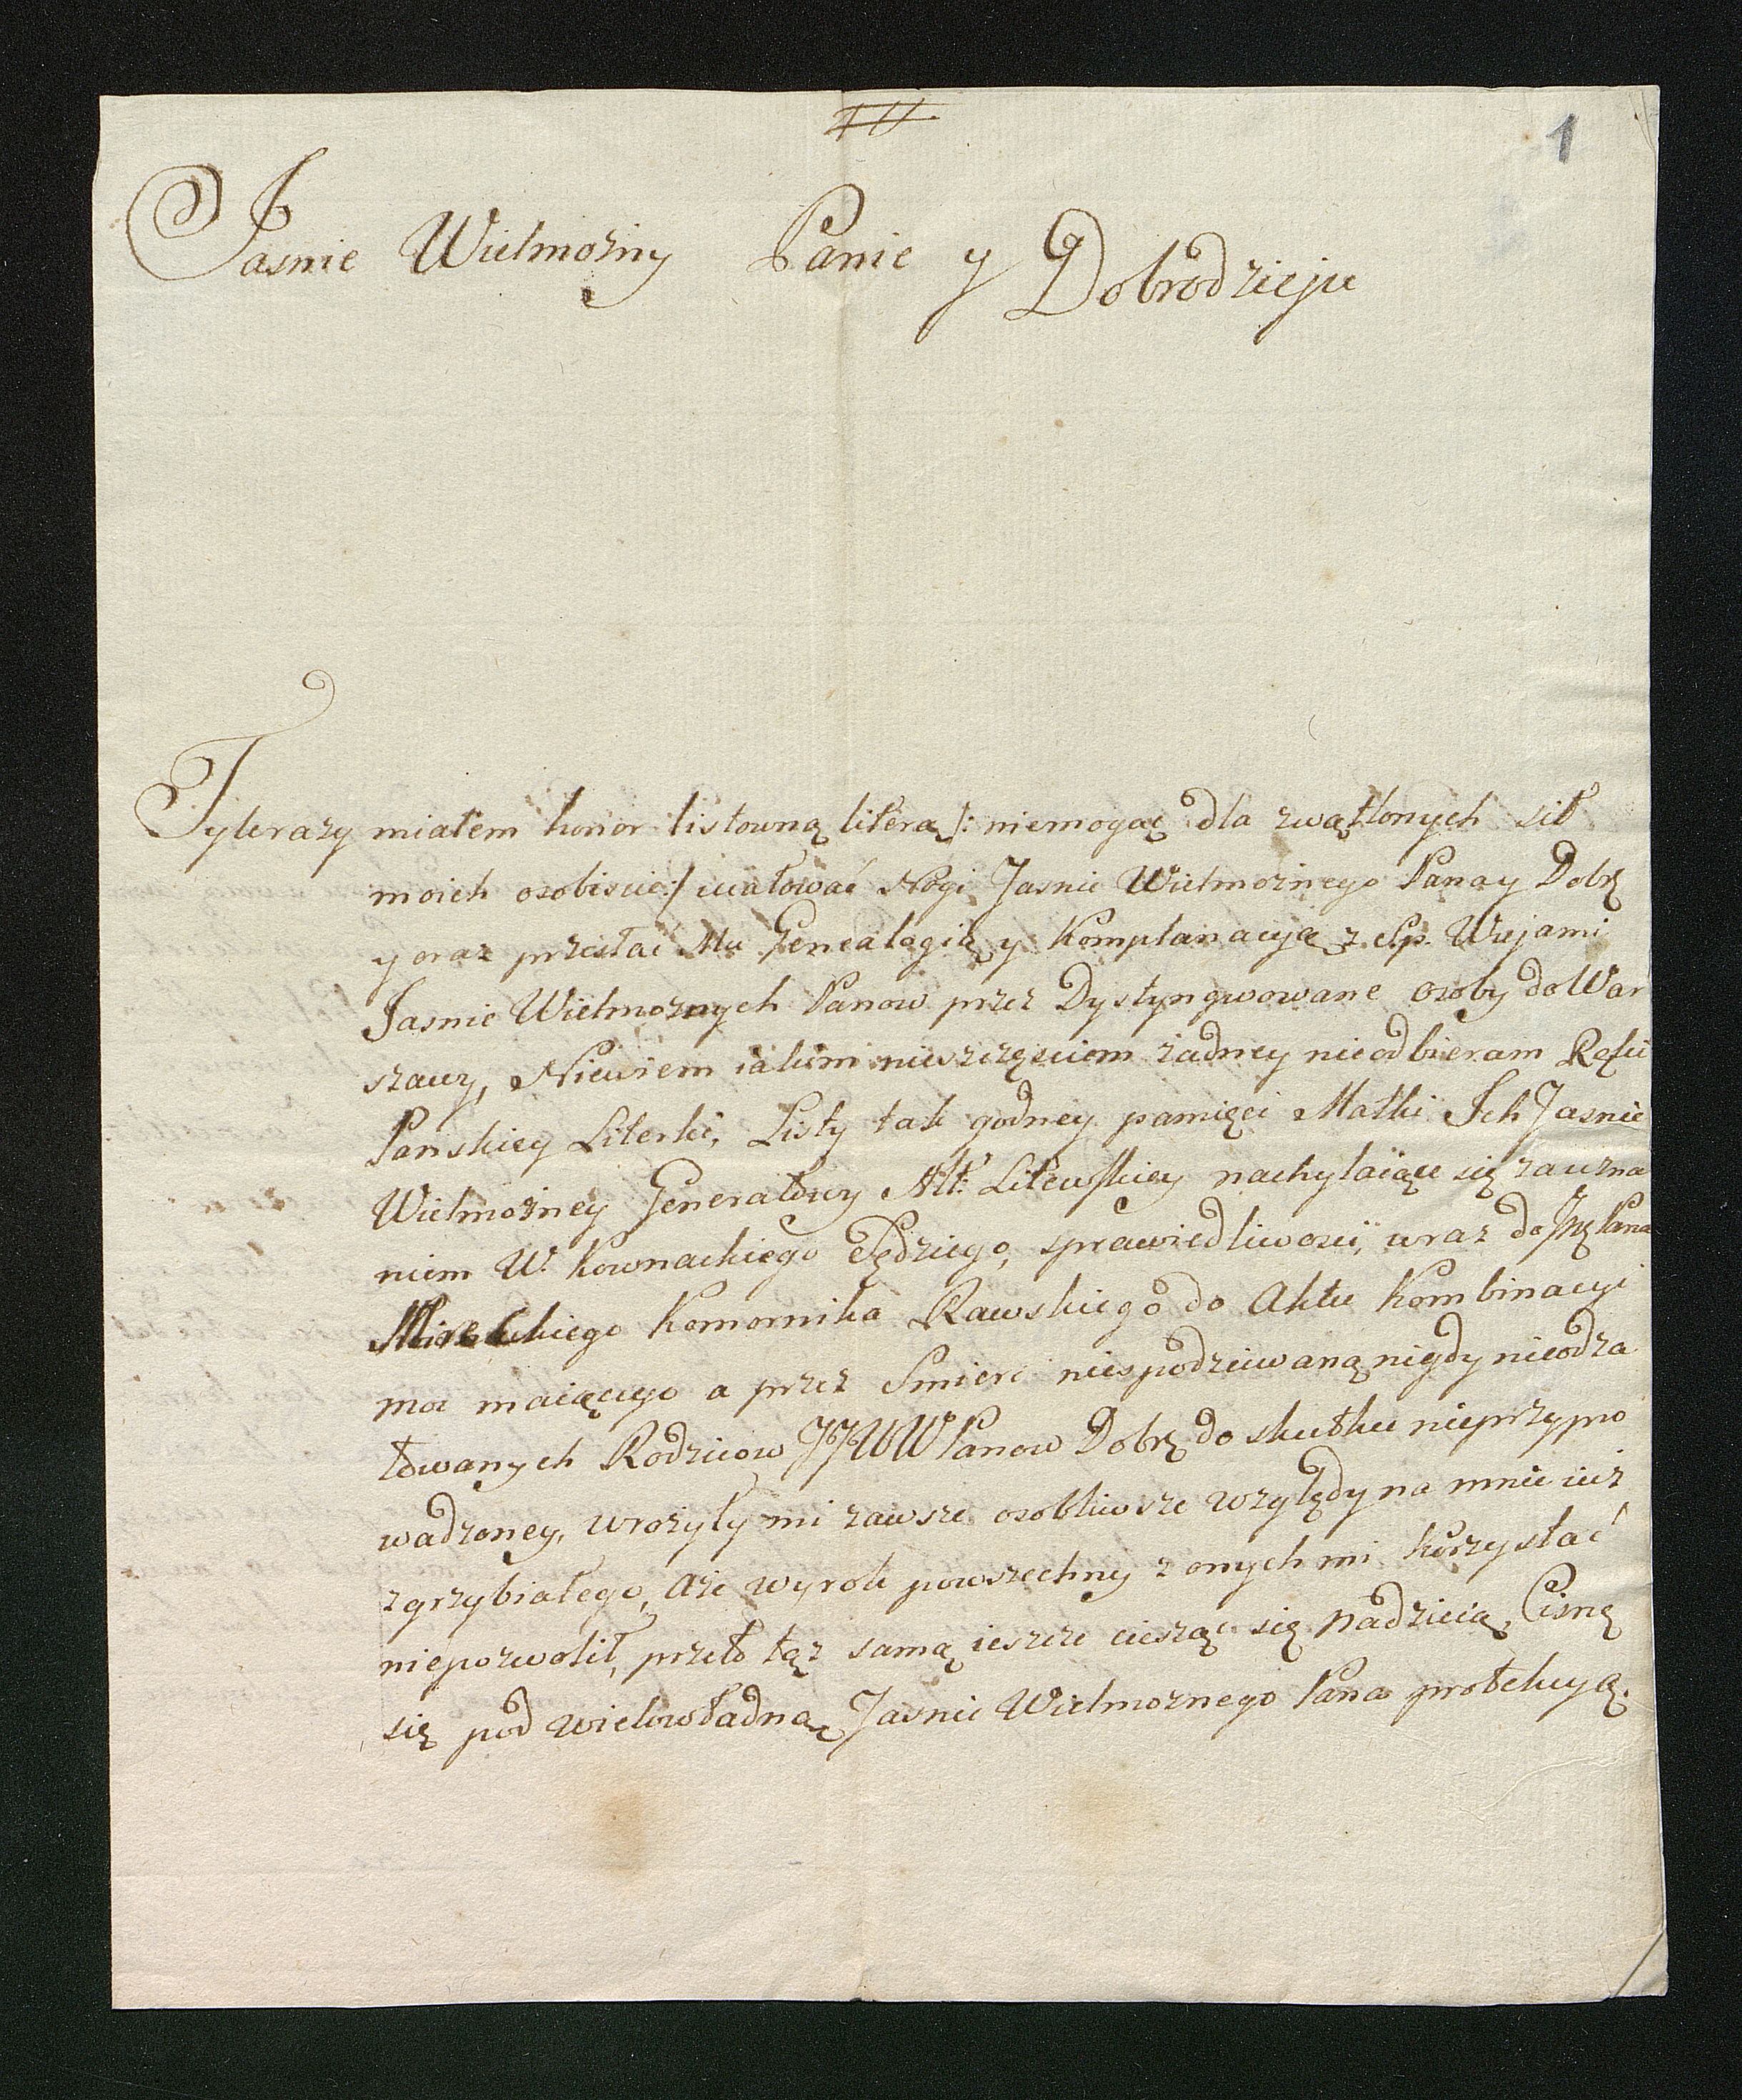 1
Jasnie Wielmożny Panie y Dobrodzieju
Tylerazy miałem honor listowną literą /: niemogąc dla zwątlonych sił
moich osobiscie :/ całować Nogi Jasnie Wielmożnego Pana y Dobrę
y oraz przesłać Mu Genealogią y Komplanacyą z Sp. Wujami
Jasnie Wielmożnych Panow przez Dystyngwowane osoby do War
szawy, Niewiem iakim nieszczęsciem żadney nieodbieram Ręki
Panskiey Literki, Listy tak godney pamięci Matki Jch Jasnie
Wielmożney Generałowy Litewskiey nachylaiące się za uzna
niem W. Kownackiego Sędziego, sprawiedliwosci, wraz do Pana
Komornika Rawskiego do Aktu Kombinacyi
moc maiącego a przez Smierc niespodziewaną nigdy nieodża
łowanych Rodzicow JJWW Panow Dobrę do skutku nieprzypro
wadzoney, wrożyły mi zawsze osobliwsze względy na mnie iuż
zgrzybiałego, Aże wyrok powszechny z onych mi korzystać
niepozwolił, przeto tąż samą ieszcze ciesząc się nadzieią, Cisnę
się pod wielowładną Jasnie Wielmożnego Pana protekcyą.